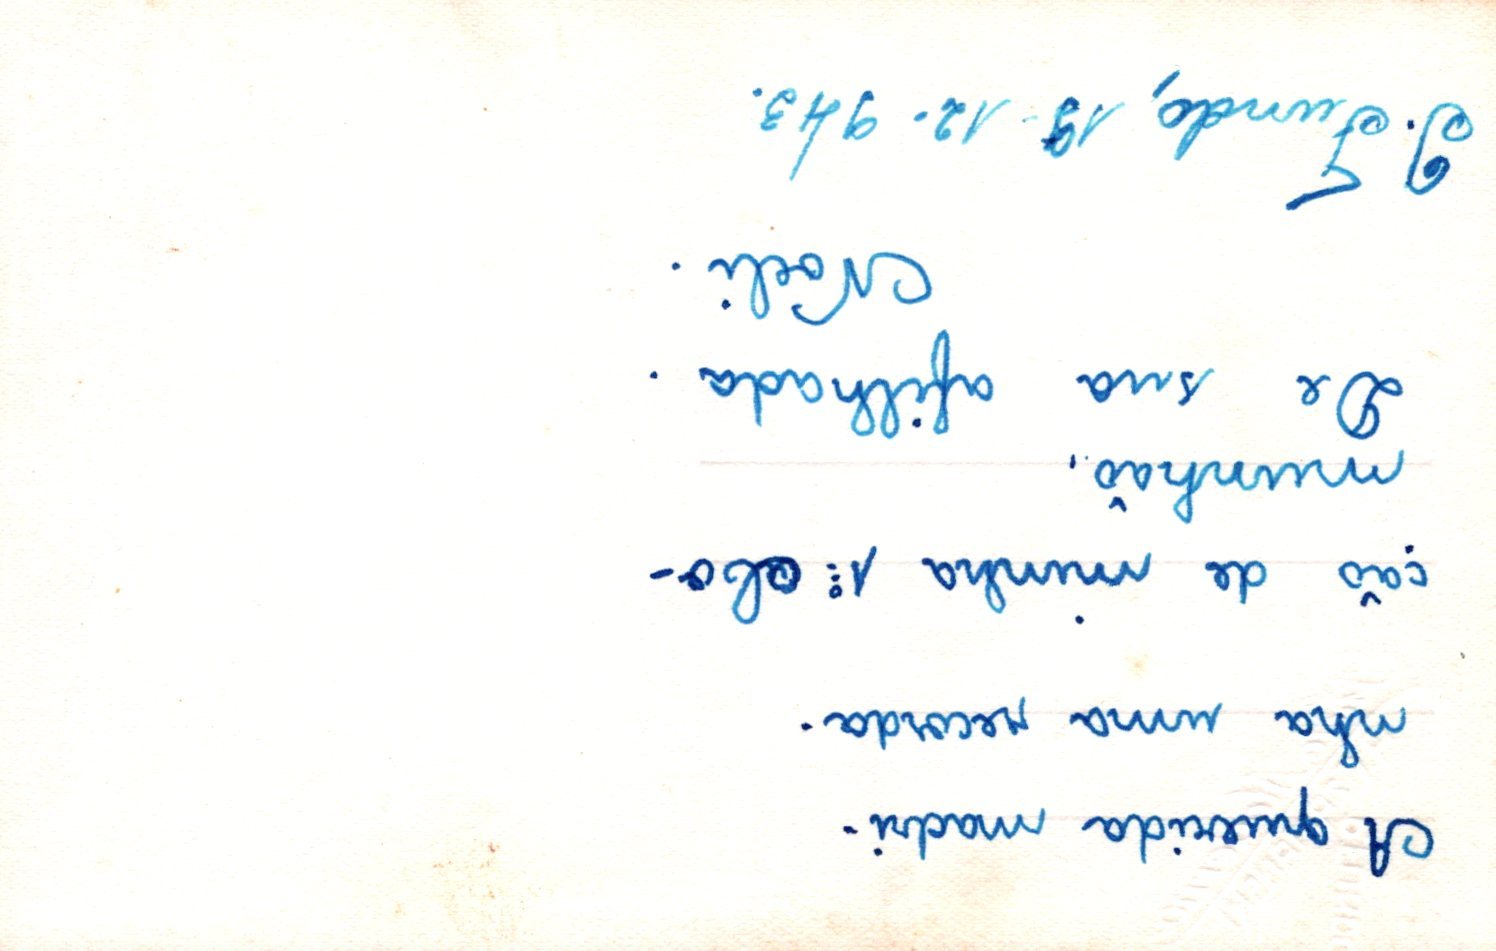 A querida madri-
nha uma recorda-
ção de minha 1ª Co-
munhão,
De sua afilhada.
Noeli.
P. Fundo, 19-12-943.